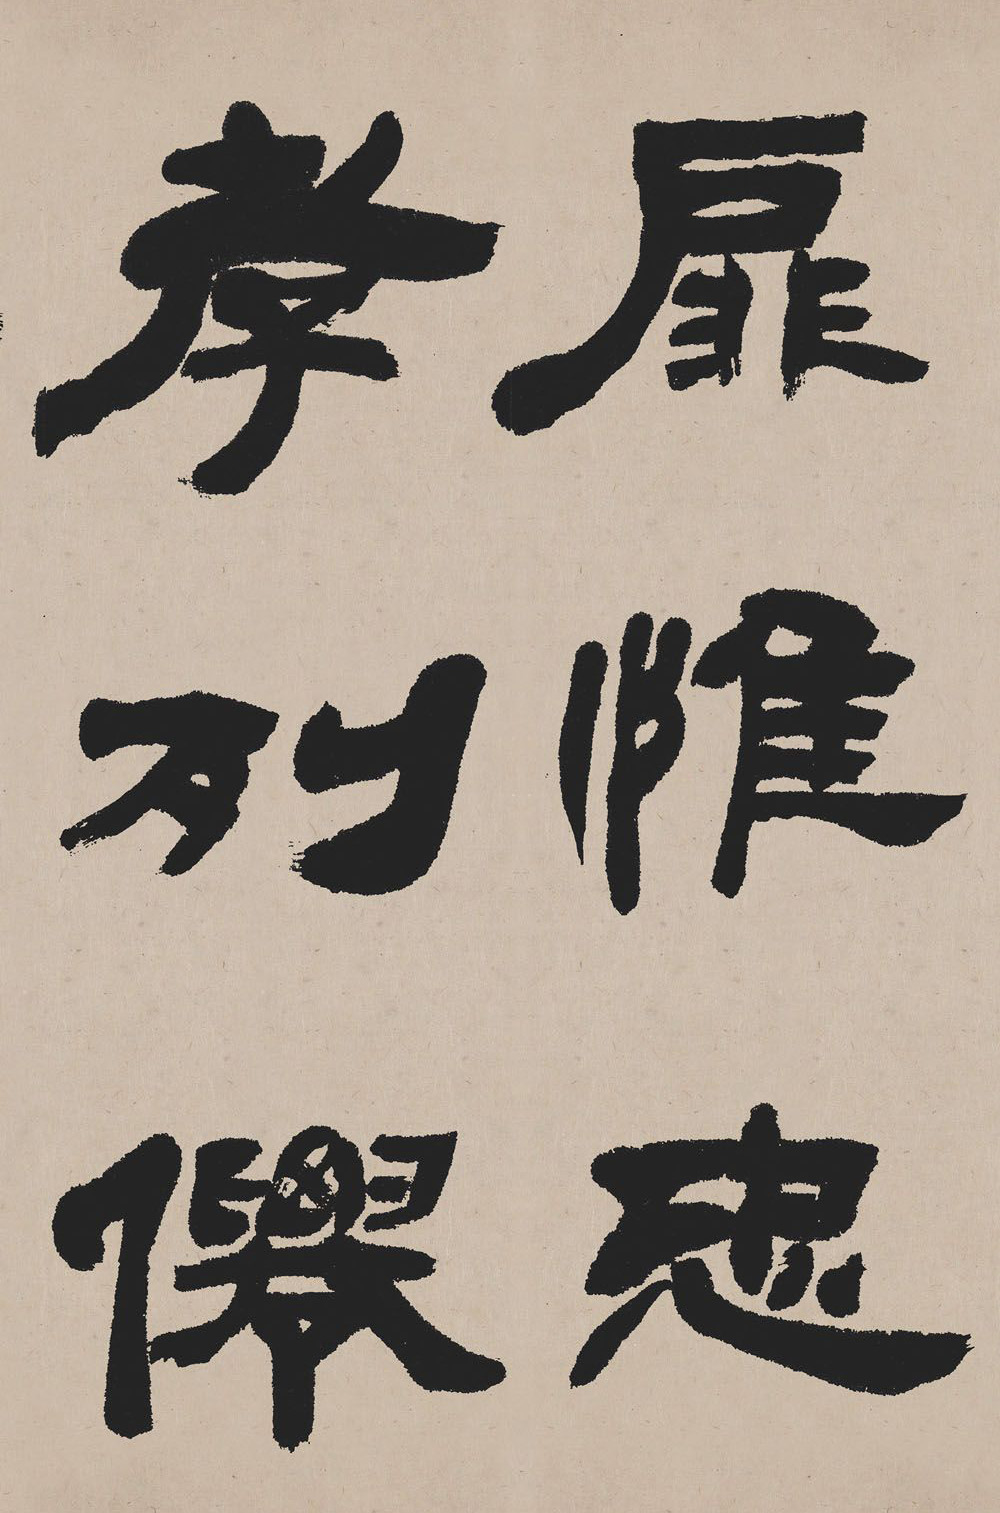 扉惟忠
孝列